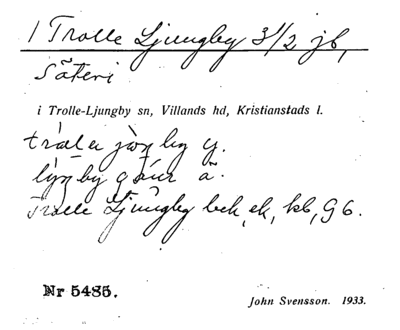 1 Trolle Ljungby 3 1/2 jb,
Säteri
i Trolle-Ljungby sn, Villands hd, Kristianstads l.
y.
å.
Trolle Ljungby bck, ek, kb, G6.
Nr 5485.
John Svensson. 1933.